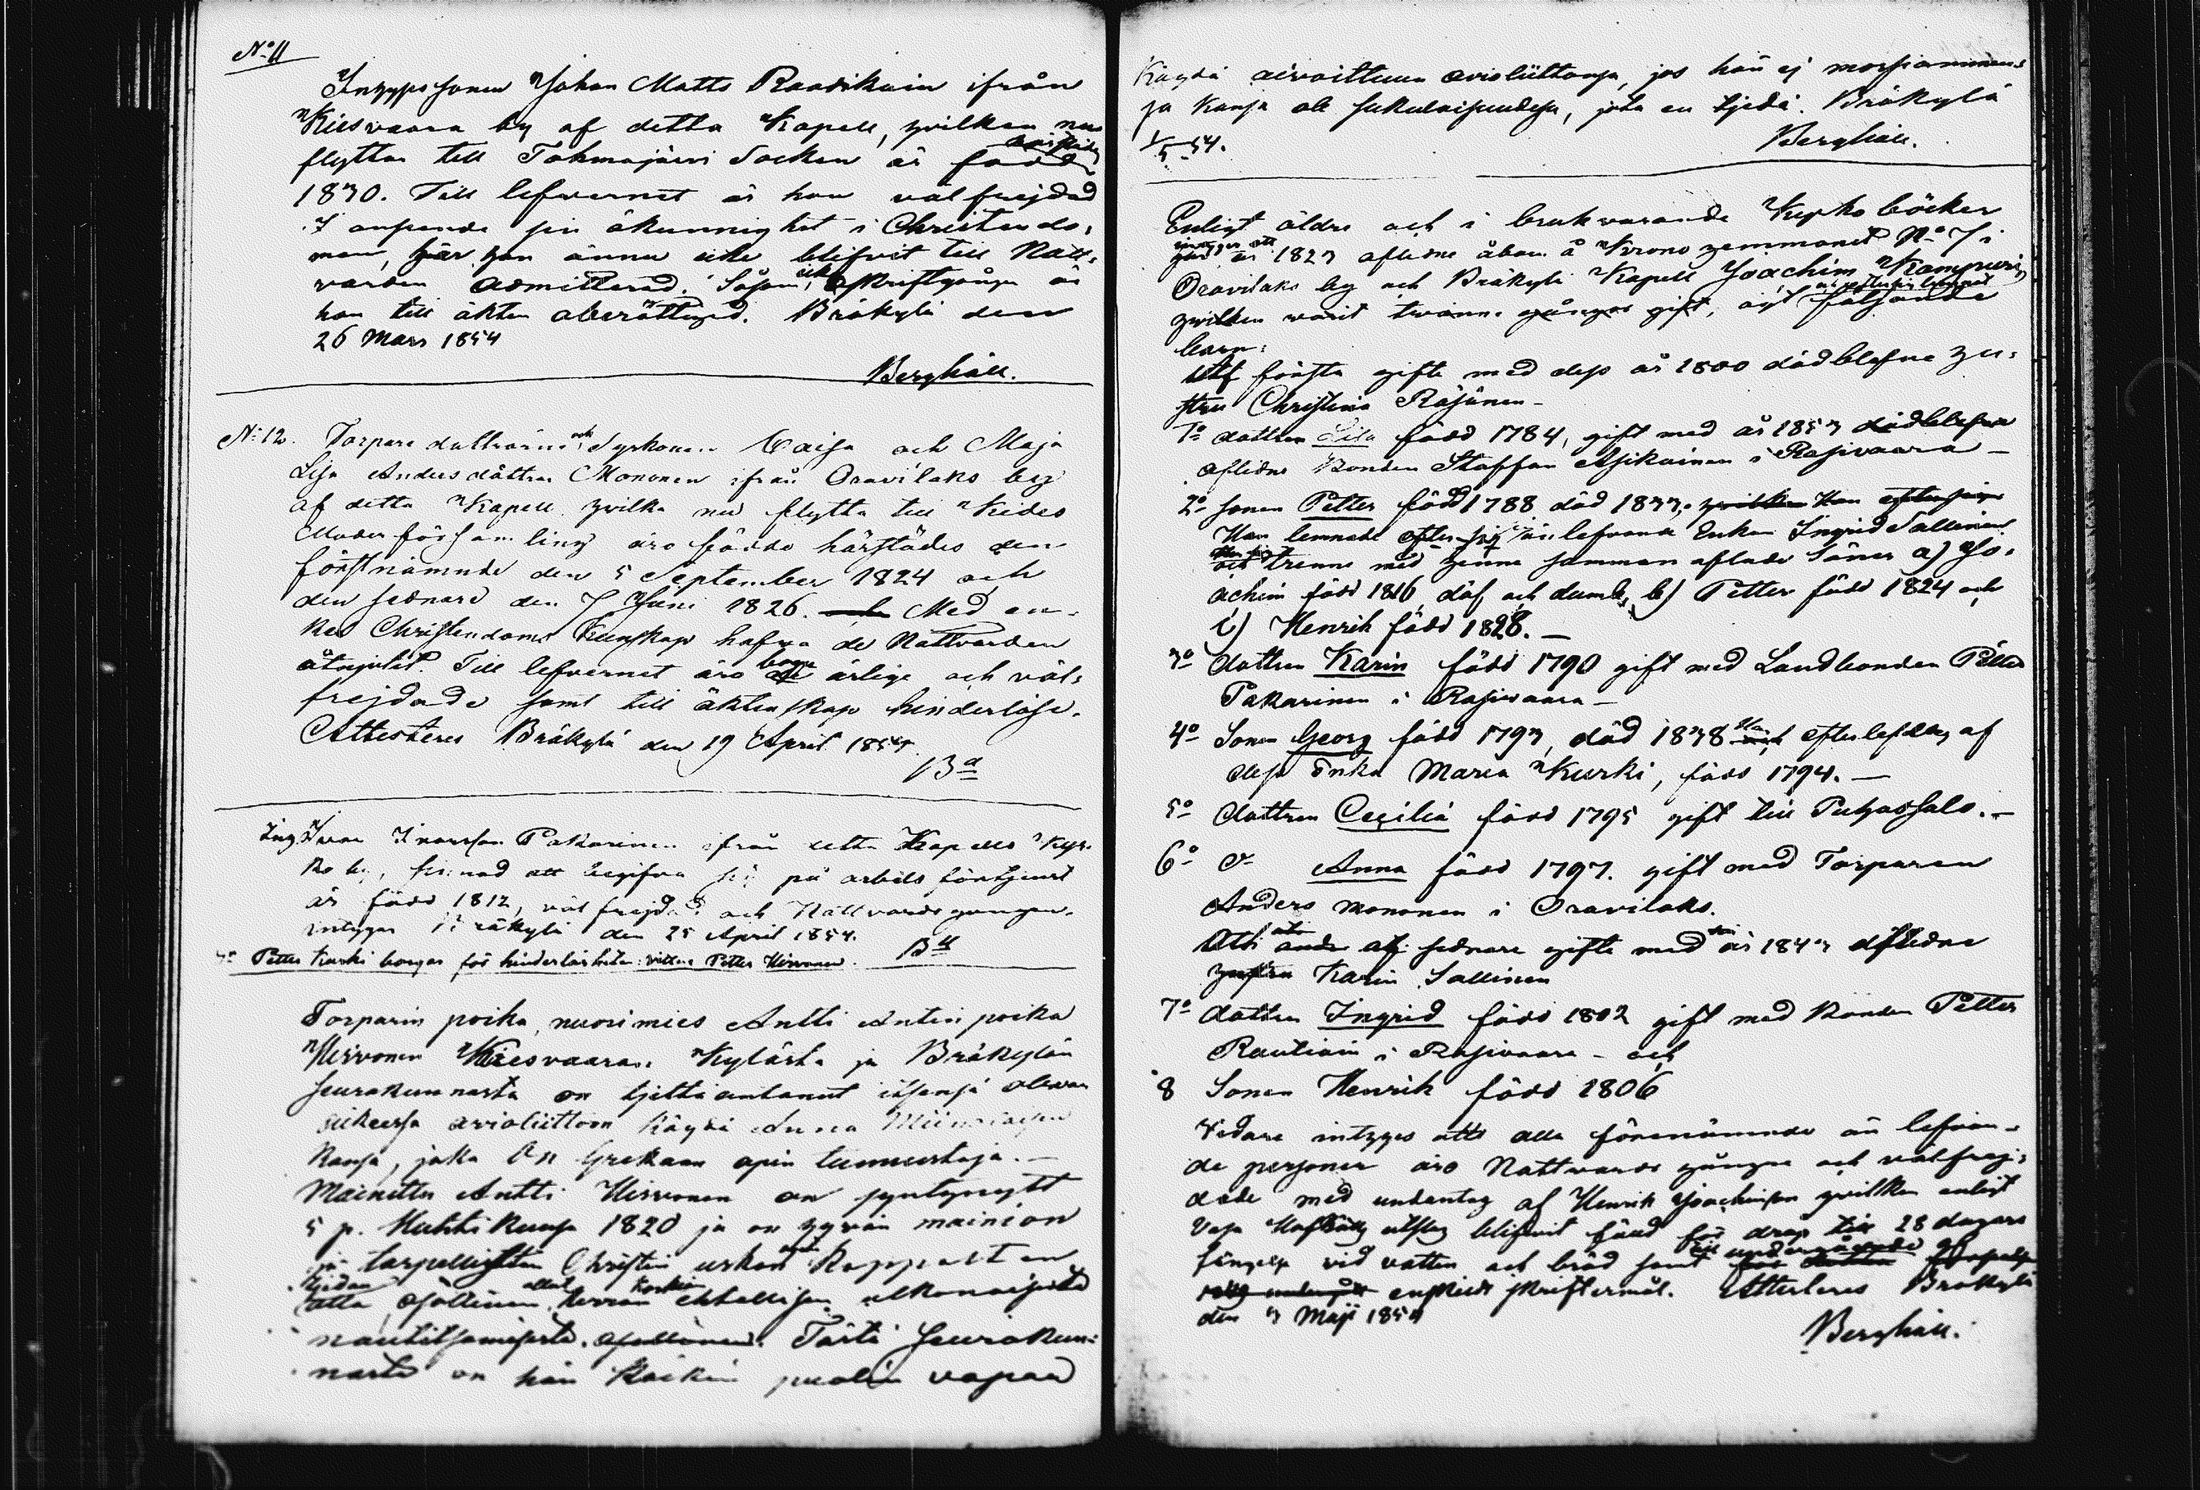 No 11
Inhyses sonen Johan Matts Raadikain ifrån
Kiesvaara by af detta Kapell, hvilken nu
flyttar till Tohmajärvi Socken är född
1830. Till lefvernet är han välfrejdad
I anseende sin okunnighet i Christendo-
men, har han ännu icke blifvit till Natt-
varden admitterad. Såsom icke skriftgången är
han till äkten oberättigad. Bräkylä den
26 Mars 1854
Berghäll.
No 12. Torpare döttrarne och Syskonen Caisa och Maja
Lisa Andersdöttrar Mononen ifrån Oravilaks by
af detta Kapell, hvilka nu flytta till Kides
Moderförsamling äro födde härstädes den
förstnämnde den 5 September 1824 och
den sednare den 7 Juni 1826. Med en-
kel Christendoms kunskap hafva de Nattvarden
åtnjutit. Till lefvernet äro begge ärlige och väl-
frejdade samt till äktenskap hinderlöse.
Attesteres Bräkylä den 19 April 1854.
Bll
Inh. Ivar Ivarsson Pakarinen ifrån detta Kapells Kyr-
ko by, sinnad att begifva sig på arbets förtjenst
är född 1812, välfrejdad och Nattvardsgången.
intygar Bräkylä den 25 April 1854.
Bll
Petter Kurki borgar för hinderlösheten: vittne Petter Hirvonen.
Torparin poika, nuorimies Antti Antin poika
Hirvonen Kiesvaaran Kylästä ja Bräkylän
seurakunnasta on tjettäantanut itsensä olevan
aikeessa avioliittoon käydä Anna
Kansa, joka on Grekaan opin tunnustaja. —
Mainittu Antti Hirvonen on syntynytt
5 p. Huhti Kuusa 1820 ja on hyvän mainion
ja tarpellisten Christin uskon oppi kappalten
tjedon ollut Herran ehtollisen
nautitsemisesta. Tästä seurakun-
nasta on hän kaikin puolin vapaa
Käydä aivoittuun avioliittonsa, jos hän ej morsiammen-
sa kansa ole sukulaisuudesa, jota en tjedä. Bräkylä
1/5 54.
Berghäll.
Enligt äldre och i bruk varande Kyrko böcker
intygar att år 1823 aflidne åboen å Krono hemmanet No 7 i
Oravilaks by och Bräkylä Kapell Joachim Kampurin,
hvilken varit tvänne gånger gift, ägt följande
barn:
Utaf första gifte med dess år 1800 dödblefne hu-
stru Christina Räsänen —
1o dottren Lisa född 1784, gift med år 1853 dödblefne
aflidne Bonden Staffan Asikainen i Rasivaara —
2o sonen Petter född 1788 död 1833. hvilken Han efter sig
Han lemnade efter sig än lefvande Enkan Ingrid Sallinen
och trenne med henne samman aflade Söner a) Jo-
achim född 1816, döf och dumb, b) Petter född 1824 och
c) Henrik född 1828. —
3o dottren Karin född 1790 gift med Landbonden Petter
Pakarinen i Rasivaara —
4o Sonen Georg född 1793, död 1838 Han efterlefdes af
dess Enka Maria Kurki, född 1794. —
5o dottren Cecilia född 1795 gift till Puhossalo. —
6o do Anna född 1797. gift med Torparen
Anders Mononen i Oravilaks.
Utaf sednare gifte med år 1843 aflidne
hustru Karin Sallinen
7o dottren Ingrid född 1802 gift med Bonden Petter
Rautiain i Rasivaara — och
8 Sonen Henrik född 1806
Vidare intyges att alla förenämnde än lefvan-
de personer äro Nattvards gångne och välfrej-
dade med undantag af Henrik Joachimsson hvilken enligt
Vasa Hofrätts utslag blifvit fäld för dråp till 28 dagars
fängelse vid vatten och bröd samt till undergående af
enskildt skriftermål. Attesteres Bräkylä
den 3 Maji 1854
Berghäll.